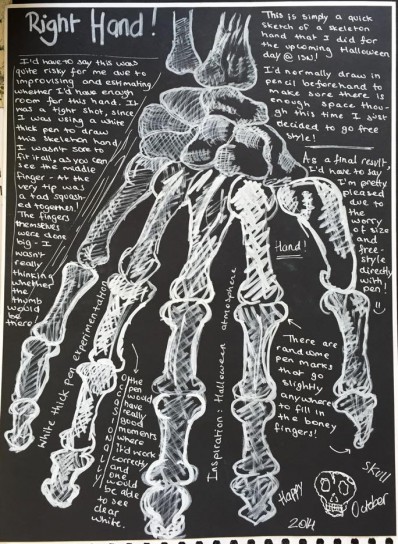 Right Hand!
This is simply a quick
sketch of a skeleton
hand that I did for
the upcoming Halloween
day @ ISN!
I'd normally draw in
pencil beforehand to
make sure there is
enough space thou-
gh this time I just
decided to go free
style!
I'd have to say this was
quite risky for me due to
improvising and estimating
whether I'd have enough
room for this hand. It
was a tight shot, since
I was using a white
thick pen to draw
this skeleton hand
I wasn't sore to
fit it all, as you can
see the middle
finger - At the
very tip was
a tad squash-
ed together!
The fingers
themselves
were done
big - I
wasn't
really
thinking
whether
the
thumb
would
be
there
As a final result,
I'd have to say
I'm pretty
pleased
due to
the
worry
of size
and
free-
style
directly
with
pen!
:)
Hand!
White thick pen experimentation
OCCASIONALLY
the
pen
would
have
really
good
moments
where
it'd work
correctly
and
one
would
be able
to see
clear
white.
Inspiration: Halloween atmosphere
There are
random
pen marks
that go
slightly
anywhere
to fill
in the
boney
fingers!
Skull
Happy
October
2014